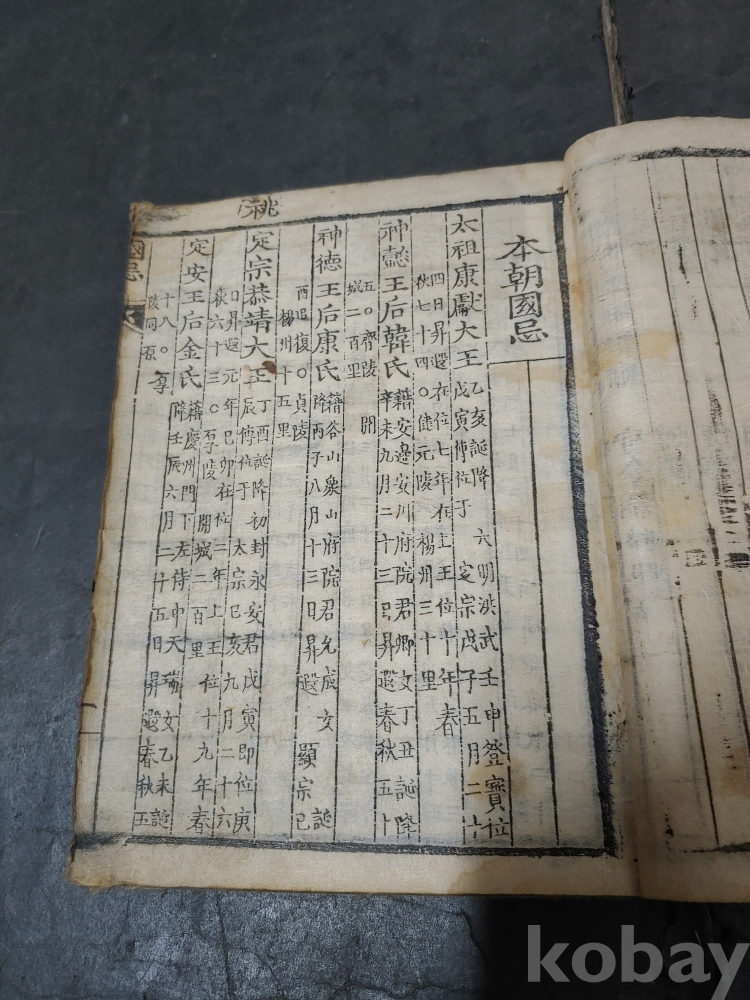 本朝國忌
太祖康獻大王
乙亥誕降 大明洪武壬申登寶位
戊寅傳位于 定宗戊子五月二十
四日昇遐在位七年在上王位十年春
秋七十四○健元陵 楊州三十里
神懿王后韓氏
籍安邊安川府院君卿女丁丑誕降
辛未九月二十三日昇遐春秋五十
五○齊陵 開
城二百里
神德王后康氏
籍谷山象山府院君允成女 誕
降丙子八月十三日昇遐 顯宗己
酉追復○貞陵
楊州十五里
祧
定宗恭靖大王
丁酉誕降初封永安君戊寅即位庚
辰傳位于 太宗己亥九月二十六
日昇遐元年己卯在位二年上王位十九年春
秋六十三○厚陵 開城二百里
定安王后金氏
籍慶州門下左侍中天瑞女乙未誕
降壬辰六月二十五日昇遐春秋五
十八○厚
陵同原
國忌
kobay